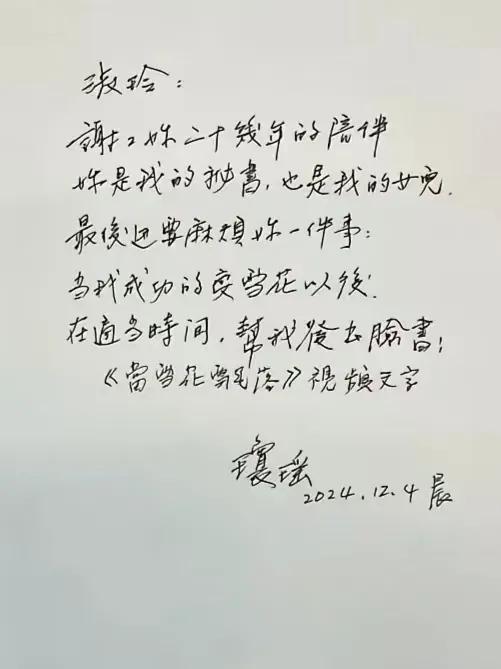 淑玲：
謝謝妳二十幾年的陪伴
妳是我的秘書，也是我的女兒．
最後还要麻煩妳一件事：
当我成功的变雪花以後．
在適当時间，幫我發出臉書；
《當雪花飄落》視頻文字
瓊瑶
2024.12.4 晨